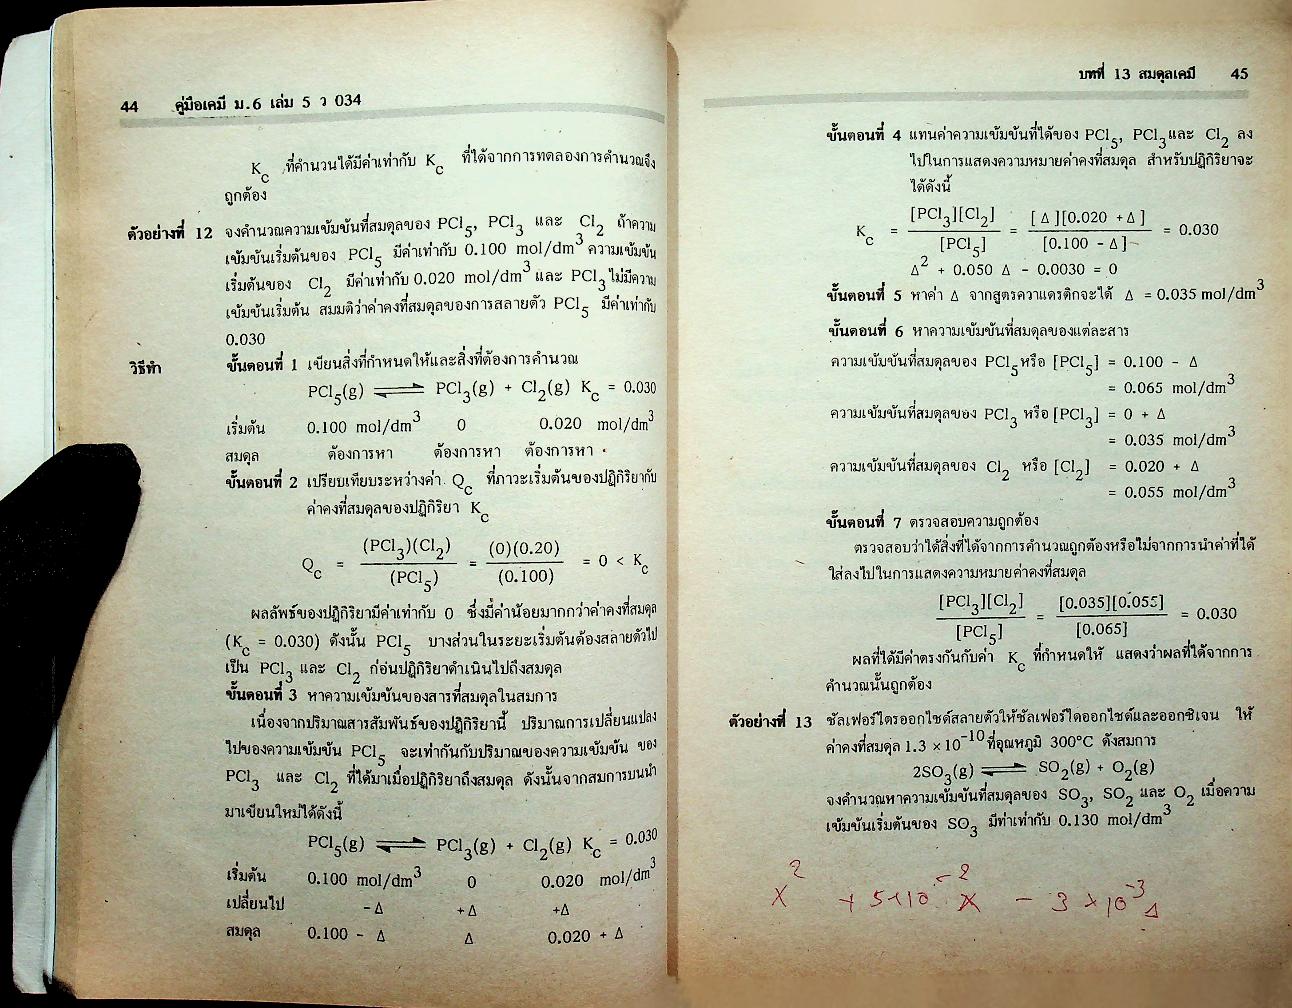 44 คู่มือเคมี ม.6 เล่ม 5 ว 034
Kc ที่คำนวนได้มีค่าเท่ากับ Kc ที่ได้จากการทดลองการคำนวณจึง
ถูกต้อง
ตัวอย่างที่ 12 จงคำนวณความเข้มข้นที่สมดุลของ PCl5, PCl3 และ Cl2 ถ้าความ
เข้มข้นเริ่มต้นของ PCl5 มีค่าเท่ากับ 0.100 mol/dm³ ความเข้มข้น
เริ่มต้นของ Cl2 มีค่าเท่ากับ 0.020 mol/dm³ และ PCl3 ไม่มีความ
เข้มข้นเริ่มต้น สมมติว่าค่าคงที่สมดุลของการสลายตัว PCl5 มีค่าเท่ากับ
0.030
วิธีทำ ขั้นตอนที่ 1 เขียนสิ่งที่กำหนดให้และสิ่งที่ต้องการคำนวณ
PCl5(g) ⇌ PCl3(g) + Cl2(g) Kc = 0.030
เริ่มต้น 0.100 mol/dm³ 0 0.020 mol/dm³
สมดุล ต้องการหา ต้องการหา ต้องการหา
ขั้นตอนที่ 2 เปรียบเทียบระหว่างค่า Qc ที่ภาวะเริ่มต้นของปฏิกิริยากับ
ค่าคงที่สมดุลของปฏิกิริยา Kc
Qc = (PCl3)(Cl2) / (PCl5) = (0)(0.20) / (0.100) = 0 < Kc
ผลลัพธ์ของปฏิกิริยามีค่าเท่ากับ 0 ซึ่งมีค่าน้อยมากกว่าค่าคงที่สมดุล
(Kc = 0.030) ดังนั้น PCl5 บางส่วนในระยะเริ่มต้นต้องสลายตัวไป
เป็น PCl3 และ Cl2 ก่อนปฏิกิริยาดำเนินไปถึงสมดุล
ขั้นตอนที่ 3 หาความเข้มข้นของสารที่สมดุลในสมการ
เนื่องจากปริมาณสารสัมพันธ์ของปฏิกิริยานี้ ปริมาณการเปลี่ยนแปลง
ไปของความเข้มข้น PCl5 จะเท่ากันกับปริมาณของความเข้มข้น ของ
PCl3 และ Cl2 ที่ได้มาเมื่อปฏิกิริยาถึงสมดุล ดังนั้นจากสมการบนนำ
มาเขียนใหม่ได้ดังนี้
PCl5(g) ⇌ PCl3(g) + Cl2(g) Kc = 0.030
เริ่มต้น 0.100 mol/dm³ 0 0.020 mol/dm³
เปลี่ยนไป -Δ +Δ +Δ
สมดุล 0.100 - Δ Δ 0.020 + Δ
บทที่ 13 สมดุลเคมี 45
ขั้นตอนที่ 4 แทนค่าความเข้มข้นที่ได้ของ PCl5, PCl3 และ Cl2 ลง
ไปในการแสดงความหมายค่าคงที่สมดุล สำหรับปฏิกิริยาจะ
ได้ดังนี้
Kc = [PCl3][Cl2] / [PCl5] = [Δ][0.020 + Δ] / [0.100 - Δ] = 0.030
Δ² + 0.050 Δ - 0.0030 = 0
ขั้นตอนที่ 5 หาค่า Δ จากสูตรควาแดรติกจะได้ Δ = 0.035 mol/dm³
ขั้นตอนที่ 6 หาความเข้มข้นที่สมดุลของแต่ละสาร
ความเข้มข้นที่สมดุลของ PCl5 หรือ [PCl5] = 0.100 - Δ
= 0.065 mol/dm³
ความเข้มข้นที่สมดุลของ PCl3 หรือ [PCl3] = 0 + Δ
= 0.035 mol/dm³
ความเข้มข้นที่สมดุลของ Cl2 หรือ [Cl2] = 0.020 + Δ
= 0.055 mol/dm³
ขั้นตอนที่ 7 ตรวจสอบความถูกต้อง
ตรวจสอบว่าได้สิ่งที่ได้จากการคำนวณถูกต้องหรือไม่จากการนำค่าที่ได้
ใส่ลงไปในการแสดงความหมายค่าคงที่สมดุล
[PCl3][Cl2] / [PCl5] = [0.035][0.055] / [0.065] = 0.030
ผลที่ได้มีค่าตรงกันกับค่า Kc ที่กำหนดให้ แสดงว่าผลที่ได้จากการ
คำนวณนั้นถูกต้อง
ตัวอย่างที่ 13 ซัลเฟอร์ไตรออกไซด์สลายตัวให้ซัลเฟอร์ไดออกไซด์และออกซิเจน ให้
ค่าคงที่สมดุล 1.3 × 10⁻¹⁰ ที่อุณหภูมิ 300°C ดังสมการ
2SO3(g) ⇌ SO2(g) + O2(g)
จงคำนวณหาความเข้มข้นที่สมดุลของ SO3, SO2 และ O2 เมื่อความ
เข้มข้นเริ่มต้นของ SO3 มีท่าเท่ากับ 0.130 mol/dm³
x² + 5×10⁻² x - 3×10⁻³ Δ